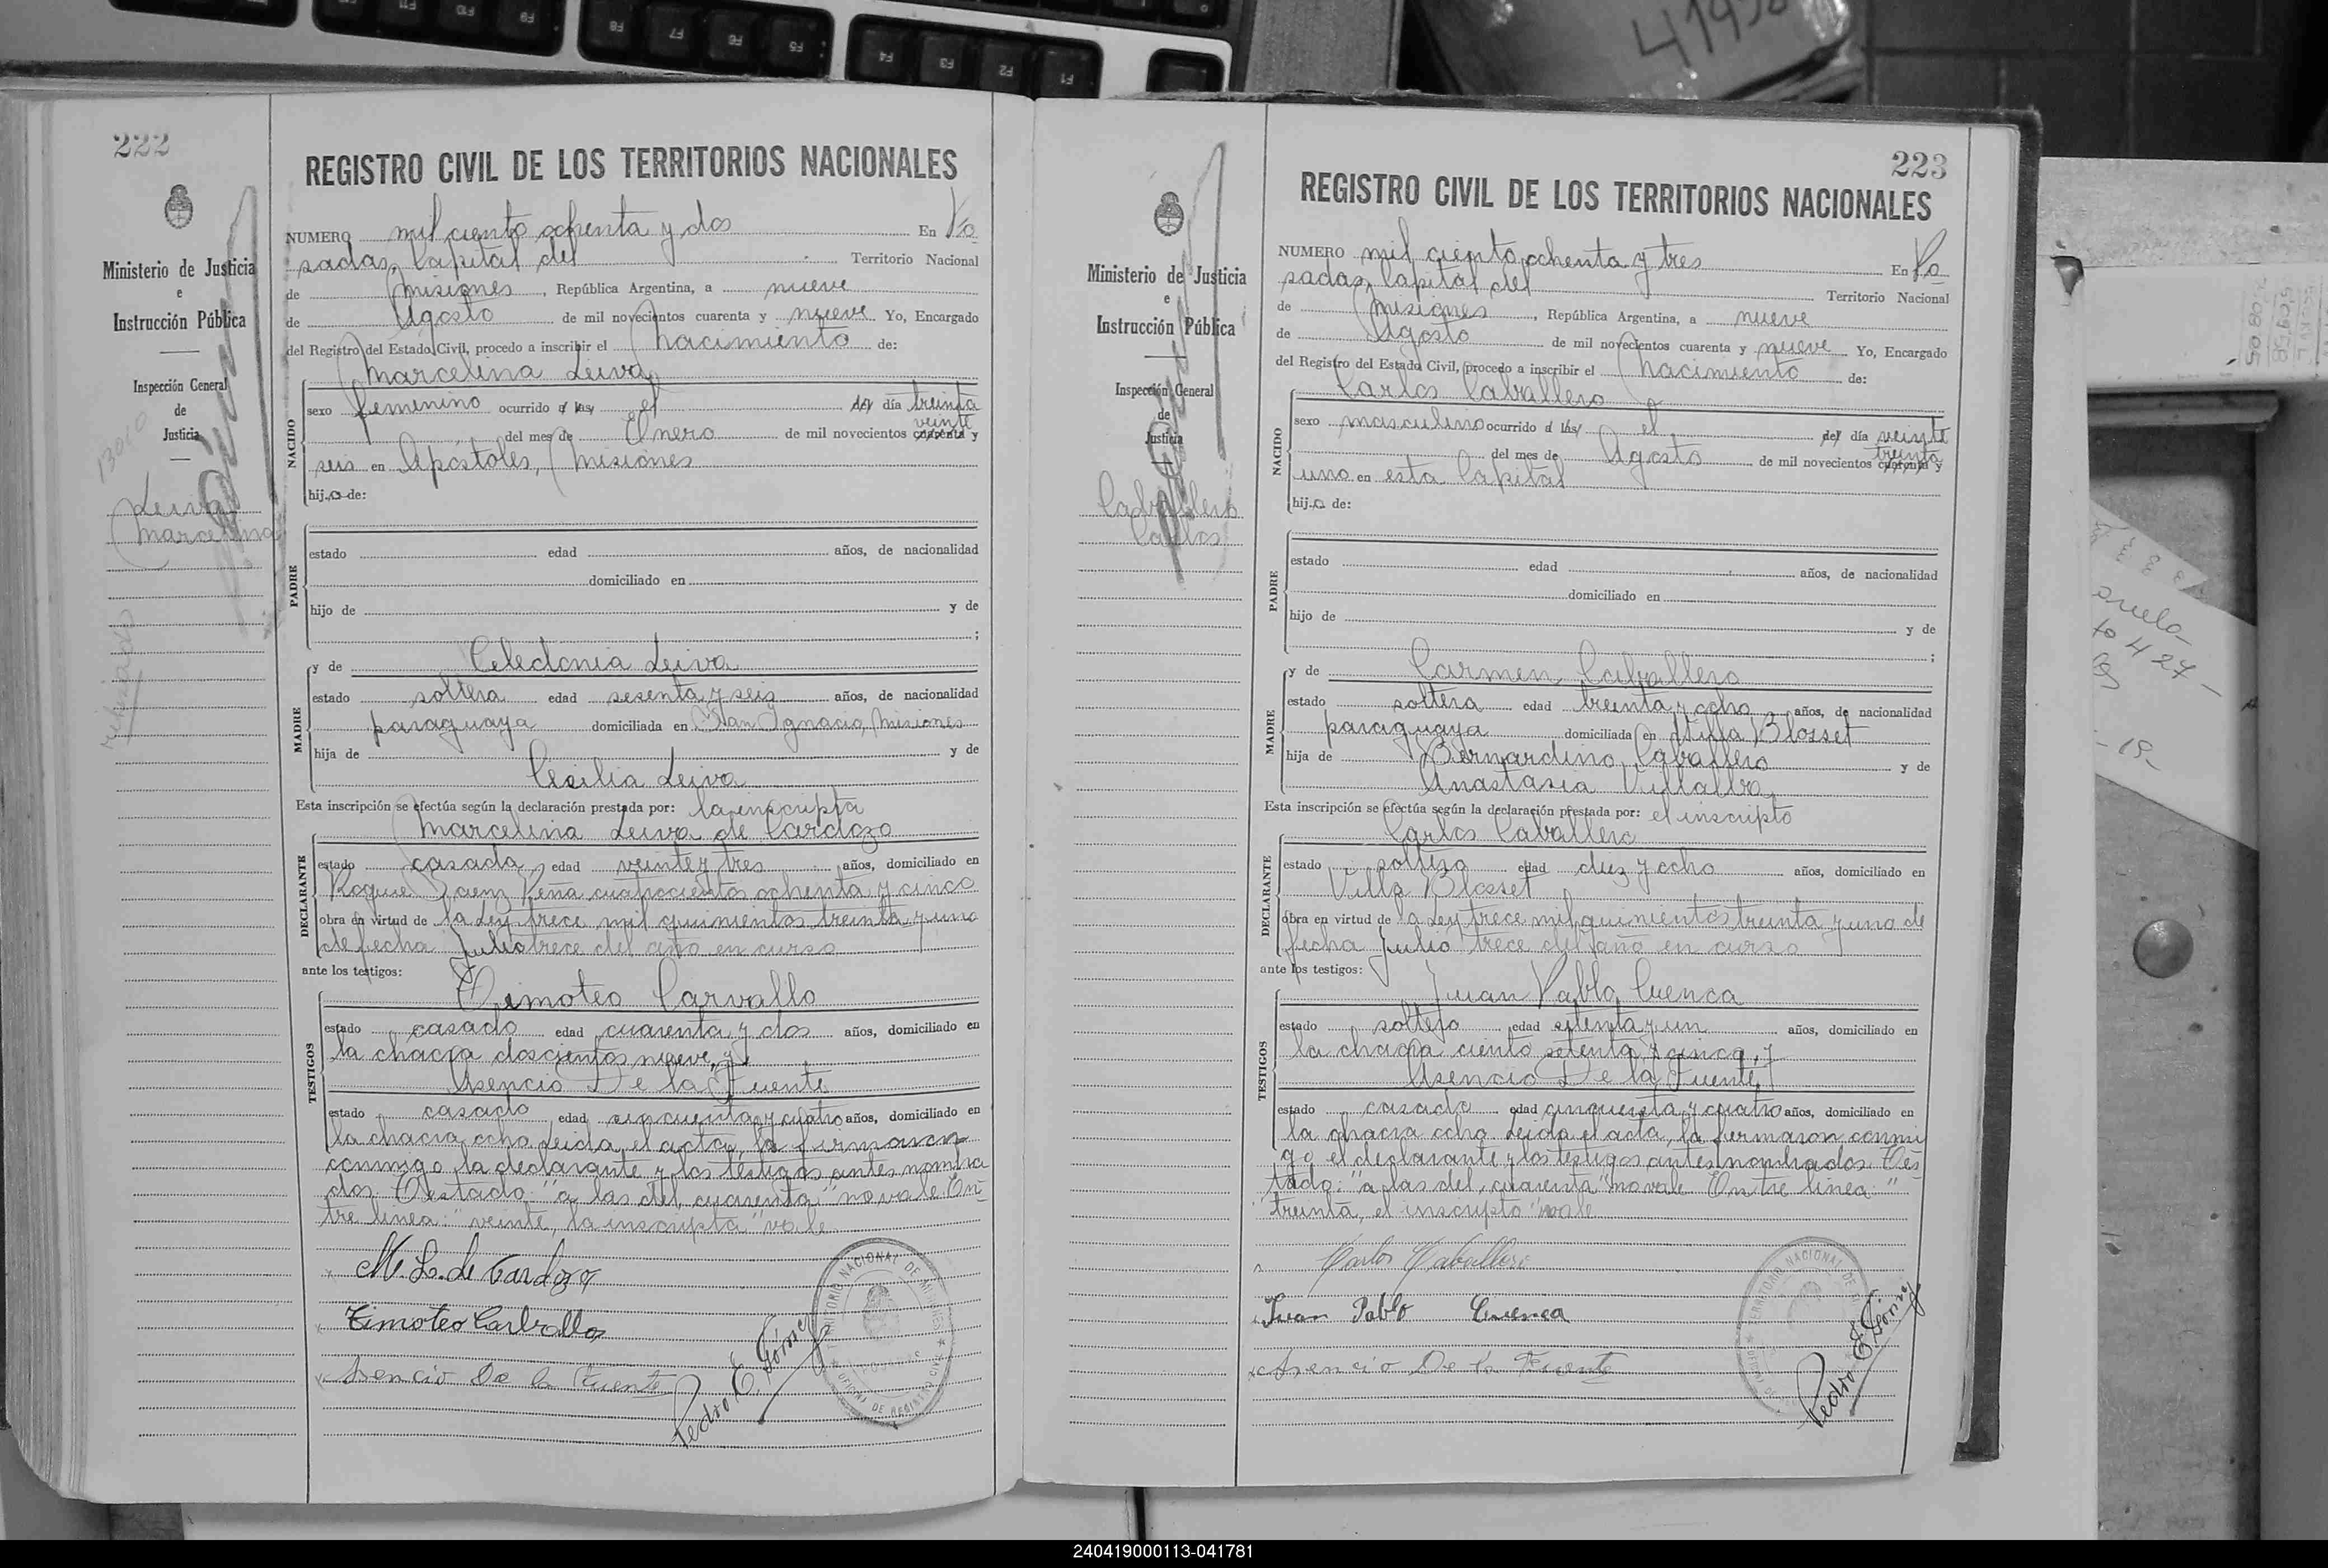 222
REGISTRO CIVIL DE LOS TERRITORIOS NACIONALES
NUMERO mil ciento ochenta y dos En Po
sadas, Capital del Territorio Nacional
de Misiones, República Argentina, a nueve
de Agosto de mil novecientos cuarenta y nueve Yo, Encargado
del Registro del Estado Civil, procedo a inscribir el Nacimiento de:
Marcelina Leiva
Ministerio de Justicia
e
Instrucción Pública
Inspección General
de
Justicia
Leiva
Marcelina
NACIDO
sexo femenino ocurrido a las el del día treinta
veinte
del mes de Enero de mil novecientos cuarenta y
seis en Apóstoles, Misiones
hija de:
PADRE
estado edad años, de nacionalidad
domiciliado en
hijo de y de
;
MADRE
y de Celedonia Leiva
estado soltera edad sesenta y seis años, de nacionalidad
paraguaya domiciliada en San Ignacio, Misiones
hija de y de
Cecilia Leiva
Esta inscripción se efectúa según la declaración prestada por: la inscripta
Marcelina Leiva de Cardozo
DECLARANTE
estado casada edad veinte y tres años, domiciliado en
Roque Saenz Peña cuatrocientos ochenta y cinco
obra en virtud de la Ley trece mil quinientos treinta y uno
de fecha Julio trece del año en curso
ante los testigos:
TESTIGOS
Timoteo Carvallo
estado casado edad cuarenta y dos años, domiciliado en
la chacra doscientos nueve, y
Asencio De la Fuente
estado casado edad cincuenta y cuatro años, domiciliado en
la chacra ocho. Leida el acta, la firmaron
conmigo la declarante y los testigos antes nombra
dos. Testado: "a las del, cuarenta" no vale. En
tre linea: "veinte, la inscripta" vale
M. L. de Cardozo
Timoteo Carballo
Asencio De la Fuente
Pedro E. Gómez
223
REGISTRO CIVIL DE LOS TERRITORIOS NACIONALES
NUMERO mil ciento ochenta y tres En Po
sadas, Capital del Territorio Nacional
de Misiones, República Argentina, a nueve
de Agosto de mil novecientos cuarenta y nueve Yo, Encargado
del Registro del Estado Civil, procedo a inscribir el Nacimiento de:
Carlos Caballero
Ministerio de Justicia
e
Instrucción Pública
Inspección General
de
Justicia
Caballero
Carlos
NACIDO
sexo masculino ocurrido a las el del día veinte
treinta
del mes de Agosto de mil novecientos cuarenta y
uno en esta Capital
hijo de:
PADRE
estado edad años, de nacionalidad
domiciliado en
hijo de y de
;
MADRE
y de Carmen Caballero
estado soltera edad treinta y ocho años, de nacionalidad
paraguaya domiciliada en Villa Blosset
hija de Bernardino Caballero y de
Anastasia Villalba
Esta inscripción se efectúa según la declaración prestada por: el inscripto
Carlos Caballero
DECLARANTE
estado soltero edad diez y ocho años, domiciliado en
Villa Blosset
obra en virtud de la Ley trece mil quinientos treinta y uno de
fecha Julio trece del año en curso
ante los testigos:
TESTIGOS
Juan Pablo Cuenca
estado soltero edad setenta y un años, domiciliado en
la chacra ciento setenta y cinco, y
Asencio De la Fuente
estado casado edad cincuenta y cuatro años, domiciliado en
la chacra ocho. Leida el acta, la firmaron conmi
go el declarante y los testigos antes nombrados. Tes
tado: "a las del, cuarenta" no vale. Entre linea: "
treinta, el inscripto" vale
Carlos Caballero
Juan Pablo Cuenca
Asencio De la Fuente
Pedro E. Gómez
240419000113-041781